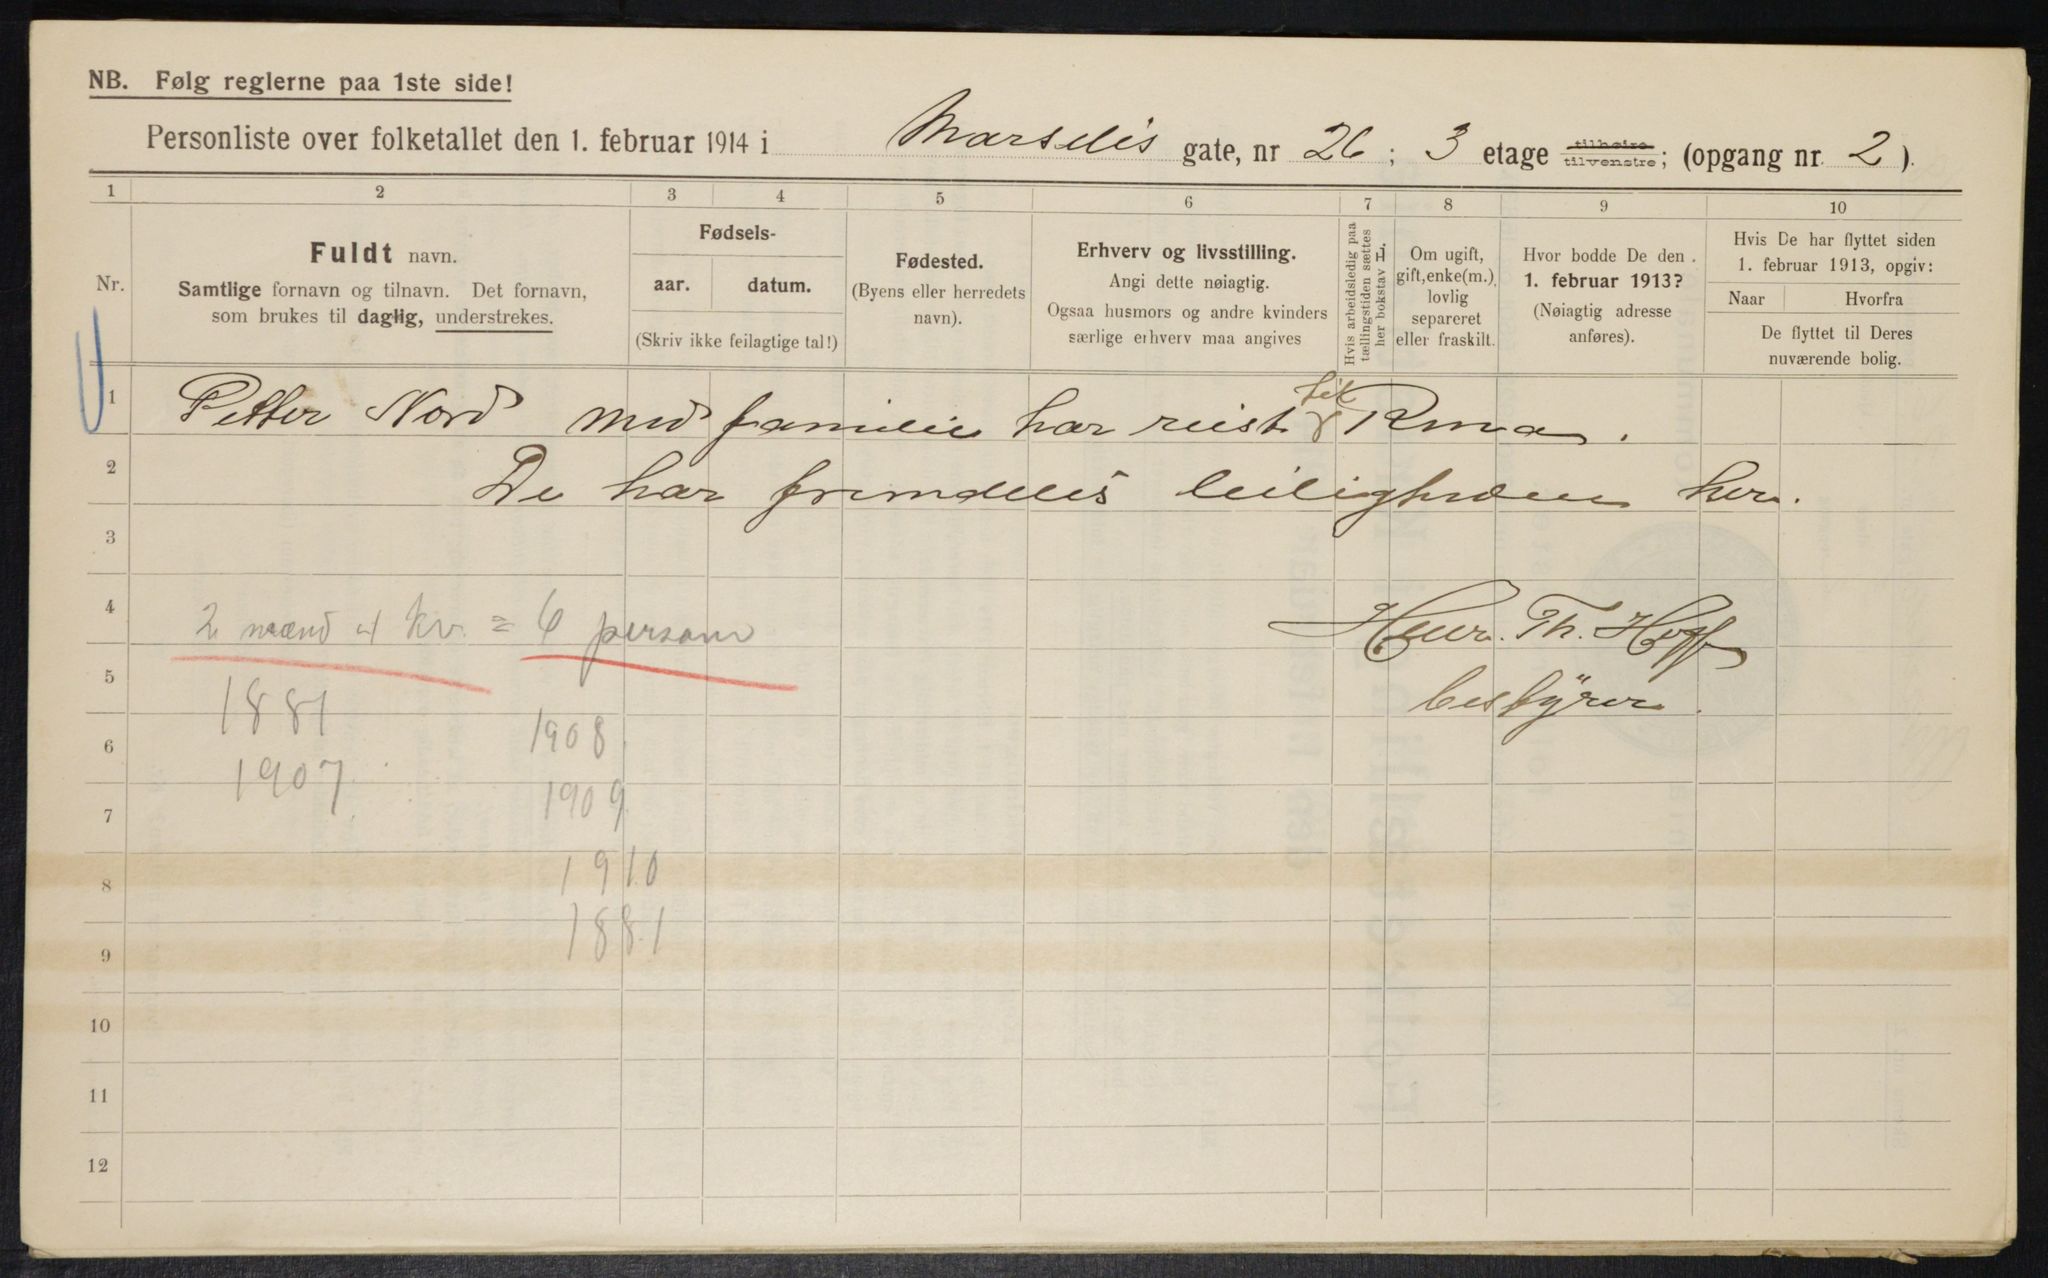 NB. Følg reglerne paa 1ste side!
Personliste over folketallet den 1. februar 1914 i Marselis gate, nr 26; 3 etage tilhøire tilvenstre; (opgang nr. 2).
1 2 3 4 5 6 7 8 9 10
Nr.
Fuldt navn.
Samtlige fornavn og tilnavn. Det fornavn,
som brukes til daglig, understrekes.
Fødsels-
aar. datum.
(Skriv ikke feilagtige tal!)
Fødested.
(Byens eller herredets
navn).
Erhverv og livsstilling.
Angi dette nøiagtig.
Ogsaa husmors og andre kvinders
særlige erhverv maa angives
Hvis arbeidsledig paa
tællingstiden sættes
her bokstav L.
Om ugift,
gift, enke(m.),
lovlig
separeret
eller fraskilt.
Hvor bodde De den
1. februar 1913?
(Nøiagtig adresse
anføres).
Hvis De har flyttet siden
1. februar 1913, opgiv:
Naar Hvorfra
De flyttet til Deres
nuværende bolig.
1 Petter Nord med familie har reist til Rena.
2 De har fremdeles leiligheden her.
3
4 2 mænd 4 kv. = 6 person
Henr. Th. Hoff
5 1881
bestyrer.
6 1908
1907
7 1909
8 1910
9 1881
10
11
12